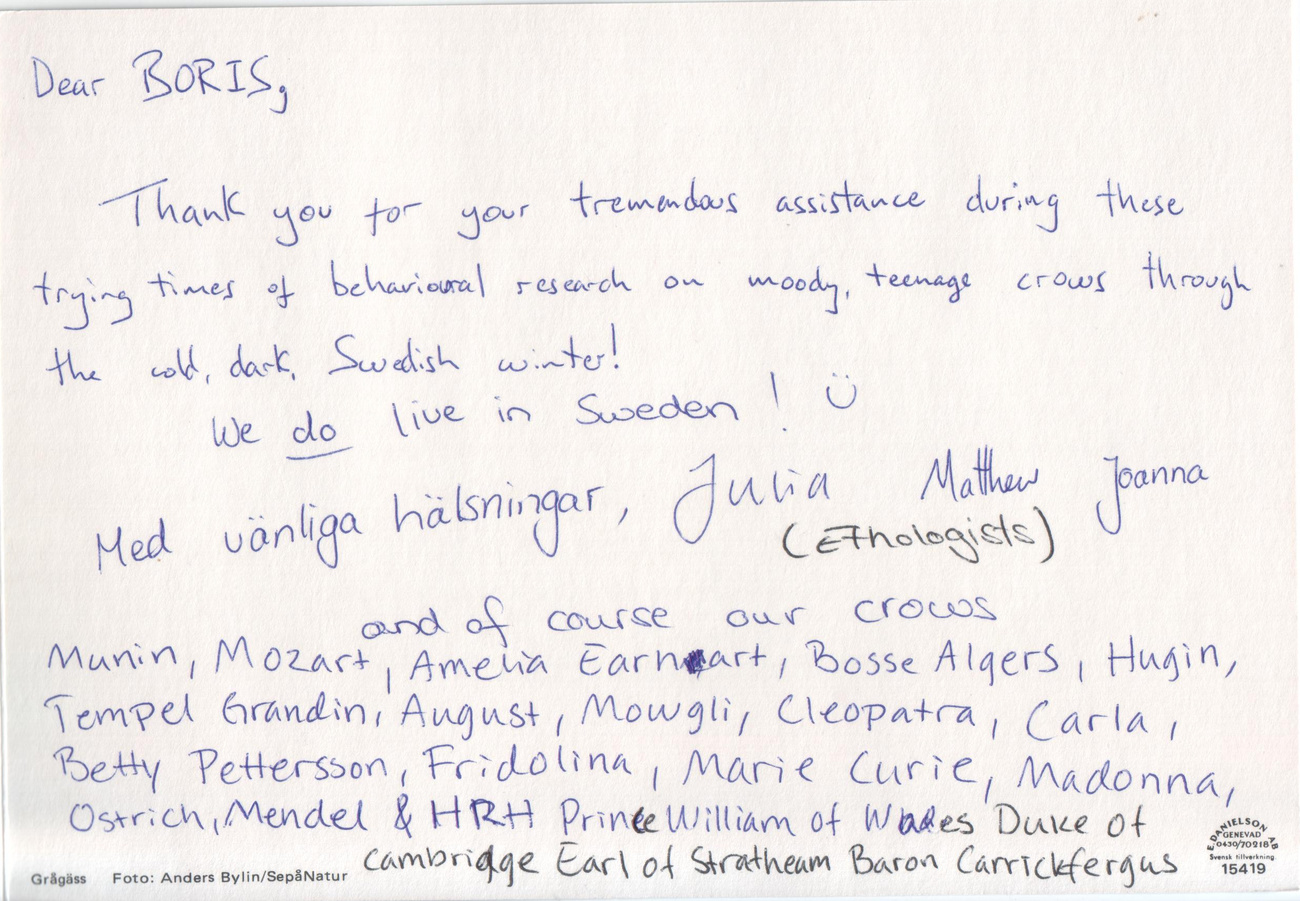 Dear BORIS,
Thank you for your tremendous assistance during these
trying times of behavioural research on moody, teenage crows through
the cold, dark, Swedish winter!
We do live in Sweden! Ü
Med vänliga hälsningar, Julia Matthew Joanna
(Ethologists)
and of course our crows
Munin, Mozart, Amelia Earheart, Bosse Algers, Hugin,
Tempel Grandin, August, Mowgli, Cleopatra, Carla,
Betty Pettersson, Fridolina, Marie Curie, Madonna,
Ostrich, Mendel & HRH Prince William of Wales Duke of
cambridge Earl of Stratheam Baron Carrickfergus
Grågäss Foto: Anders Bylin/SepåNatur
E. DANIELSON AB
GENEVAD
0430/70218
Svensk tillverkning
15419